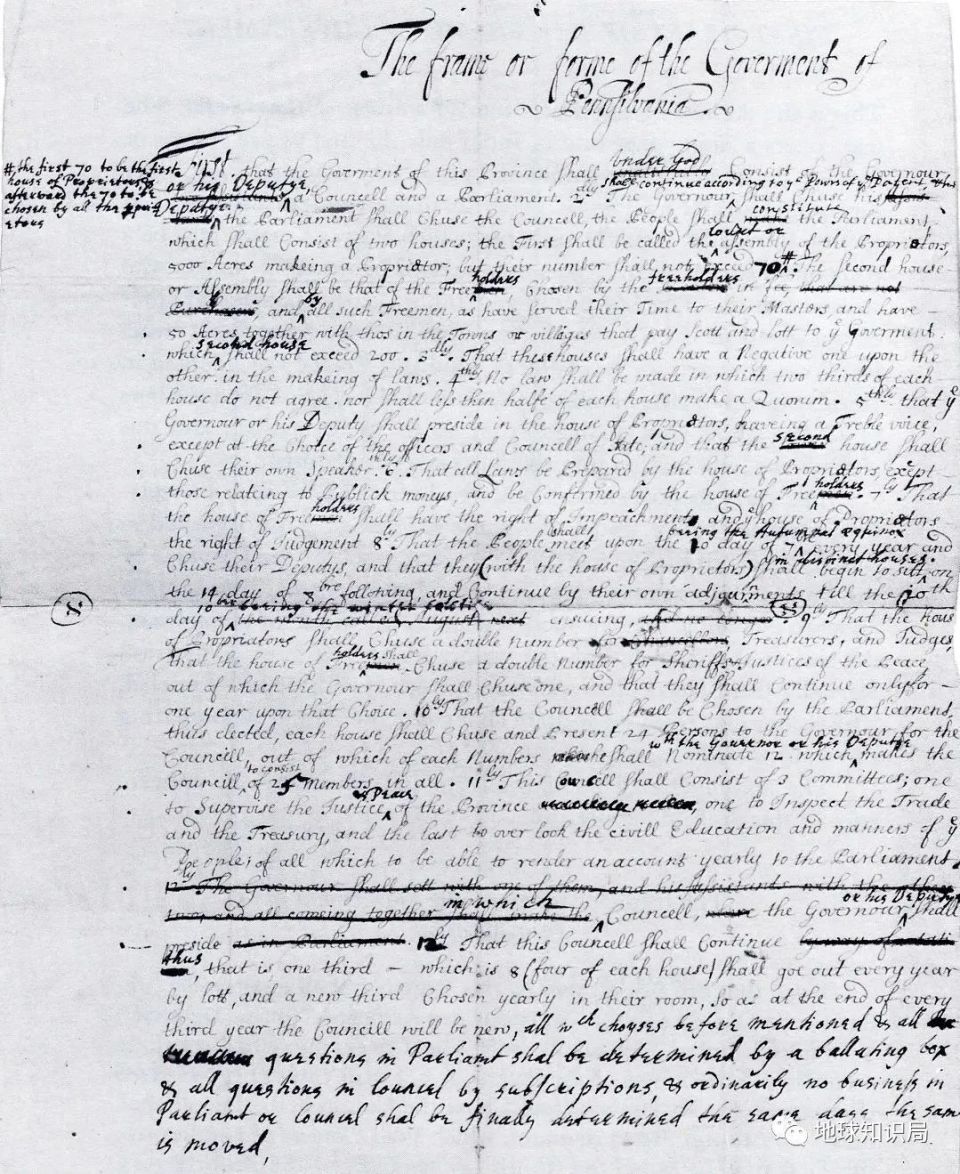 The frame or forme of the Goverment of
Pennsilvania.
#, the first 70 to be the first
house of Proprietors &
afterward the 70 to be
chosen by all the propri
etors
First. that the Goverment of this Province Shall under God Consist of the Governour
or his Deputye, a Councell and a Parliament. 2 The Governour shall Chuse his
shall continue according to ye Powrs of ye Patent, & that
Deputye. the Parliament Shall Chuse the Councell, the People Shall constitute the Parliament,
which Shall Consist of two houses; the First Shall be called the assembly of the Proprietors,
5000 Acres makeing a Proprietor; but their number Shall not Exceed 70 #. The Second house
or Assembly Shall be that of the Freeholdres, Chosen by the freeholders in fee, that are not
Purchasers, and by all such Freemen, as have Served their Time to their Masters and have
50 Acres, together with thos in the Towns or villages that pay Scott and lott to ye Goverment:
which second house shall not exceed 200. 3ly. That these houses Shall have a Negative one upon the
other in the makeing of laws. 4thly No law Shall be made in which two thirds of each
house do not agree. nor Shall less then halfe of each house make a Quorum. 5thly that ye
Governour or his Deputy Shall preside in the house of Proprietors, haveing a Treble voice,
except at the Choice of the officers and Councell of State, and that the second house Shall
Chuse their own Speaker. 6 That all Laws be Prepared by the house of Proprietors, except
those relateing to Publick moneys, and be Confirmed by the house of Freeholdres. 7ly That
the house of Freeholdres Shall have the right of Impeachments, and ye house of Proprietors
the right of Judgement 8ly That the People shall meet upon the 10 day of 7 being the Autumnal equinox every year and
Chuse their Deputys, and that they (with the house of Proprietors) Shall in distinct houses begin to sitt on
the 14 day of 8bre following, and Continue by their own adjournments till the 20th
day of 10bre beeing the winter solstice the month called August next ensuing, and no longer 9ly That the hous
of Propriators Shall Chuse a double Number for Chancellors, Treasurers, and Judges,
that the house of Freeholdres shall Chuse a double number for Sheriffs & Justices of the Peace,
out of which the Governour Shall Chuse one, and that they Shall Continue only for
one year upon that Choice. 10ly That the Councell Shall be Chosen by the Parliament,
thus elected, each house Shall Chuse and Present 24 Persons to the Governour, for the
Councell, out of which of each Numbers he Shall Nominate 12 which wth the Governor or his Deputye makes the
Councill, to consist of 25 Members, in all. 11ly This Councell Shall Consist of 3 Committees; one
to Supervise the Justice & Peace, of the Province, one to Inspect the Trade
and the Treasury, and the last to over look the civill Education and manners of ye
People; of all which to be able to render an account yearly to the Parliament.
12ly The Governour Shall sett with one of them, and his assistants with the other
two, and all comeing together Shall make the in which Councell, where the Governour or his Deputye Shall
preside as in Parliament. 12ly That this Councell Shall Continue by way of rotation
thus, that is, one third – which is 8 (four of each house) Shall goe out every year
by lott, and a new third Chosen yearly in their room, So as at the end of every
third year the Councill will be new, all wch choyses before mentioned & all
questions in Parliamt shal be determined by a ballating box
& all questions in Councel by subscriptions, & ordinarily no business in
Parliamt or Councel shal be finally determined the same daye the same
is moved,
地球知识局